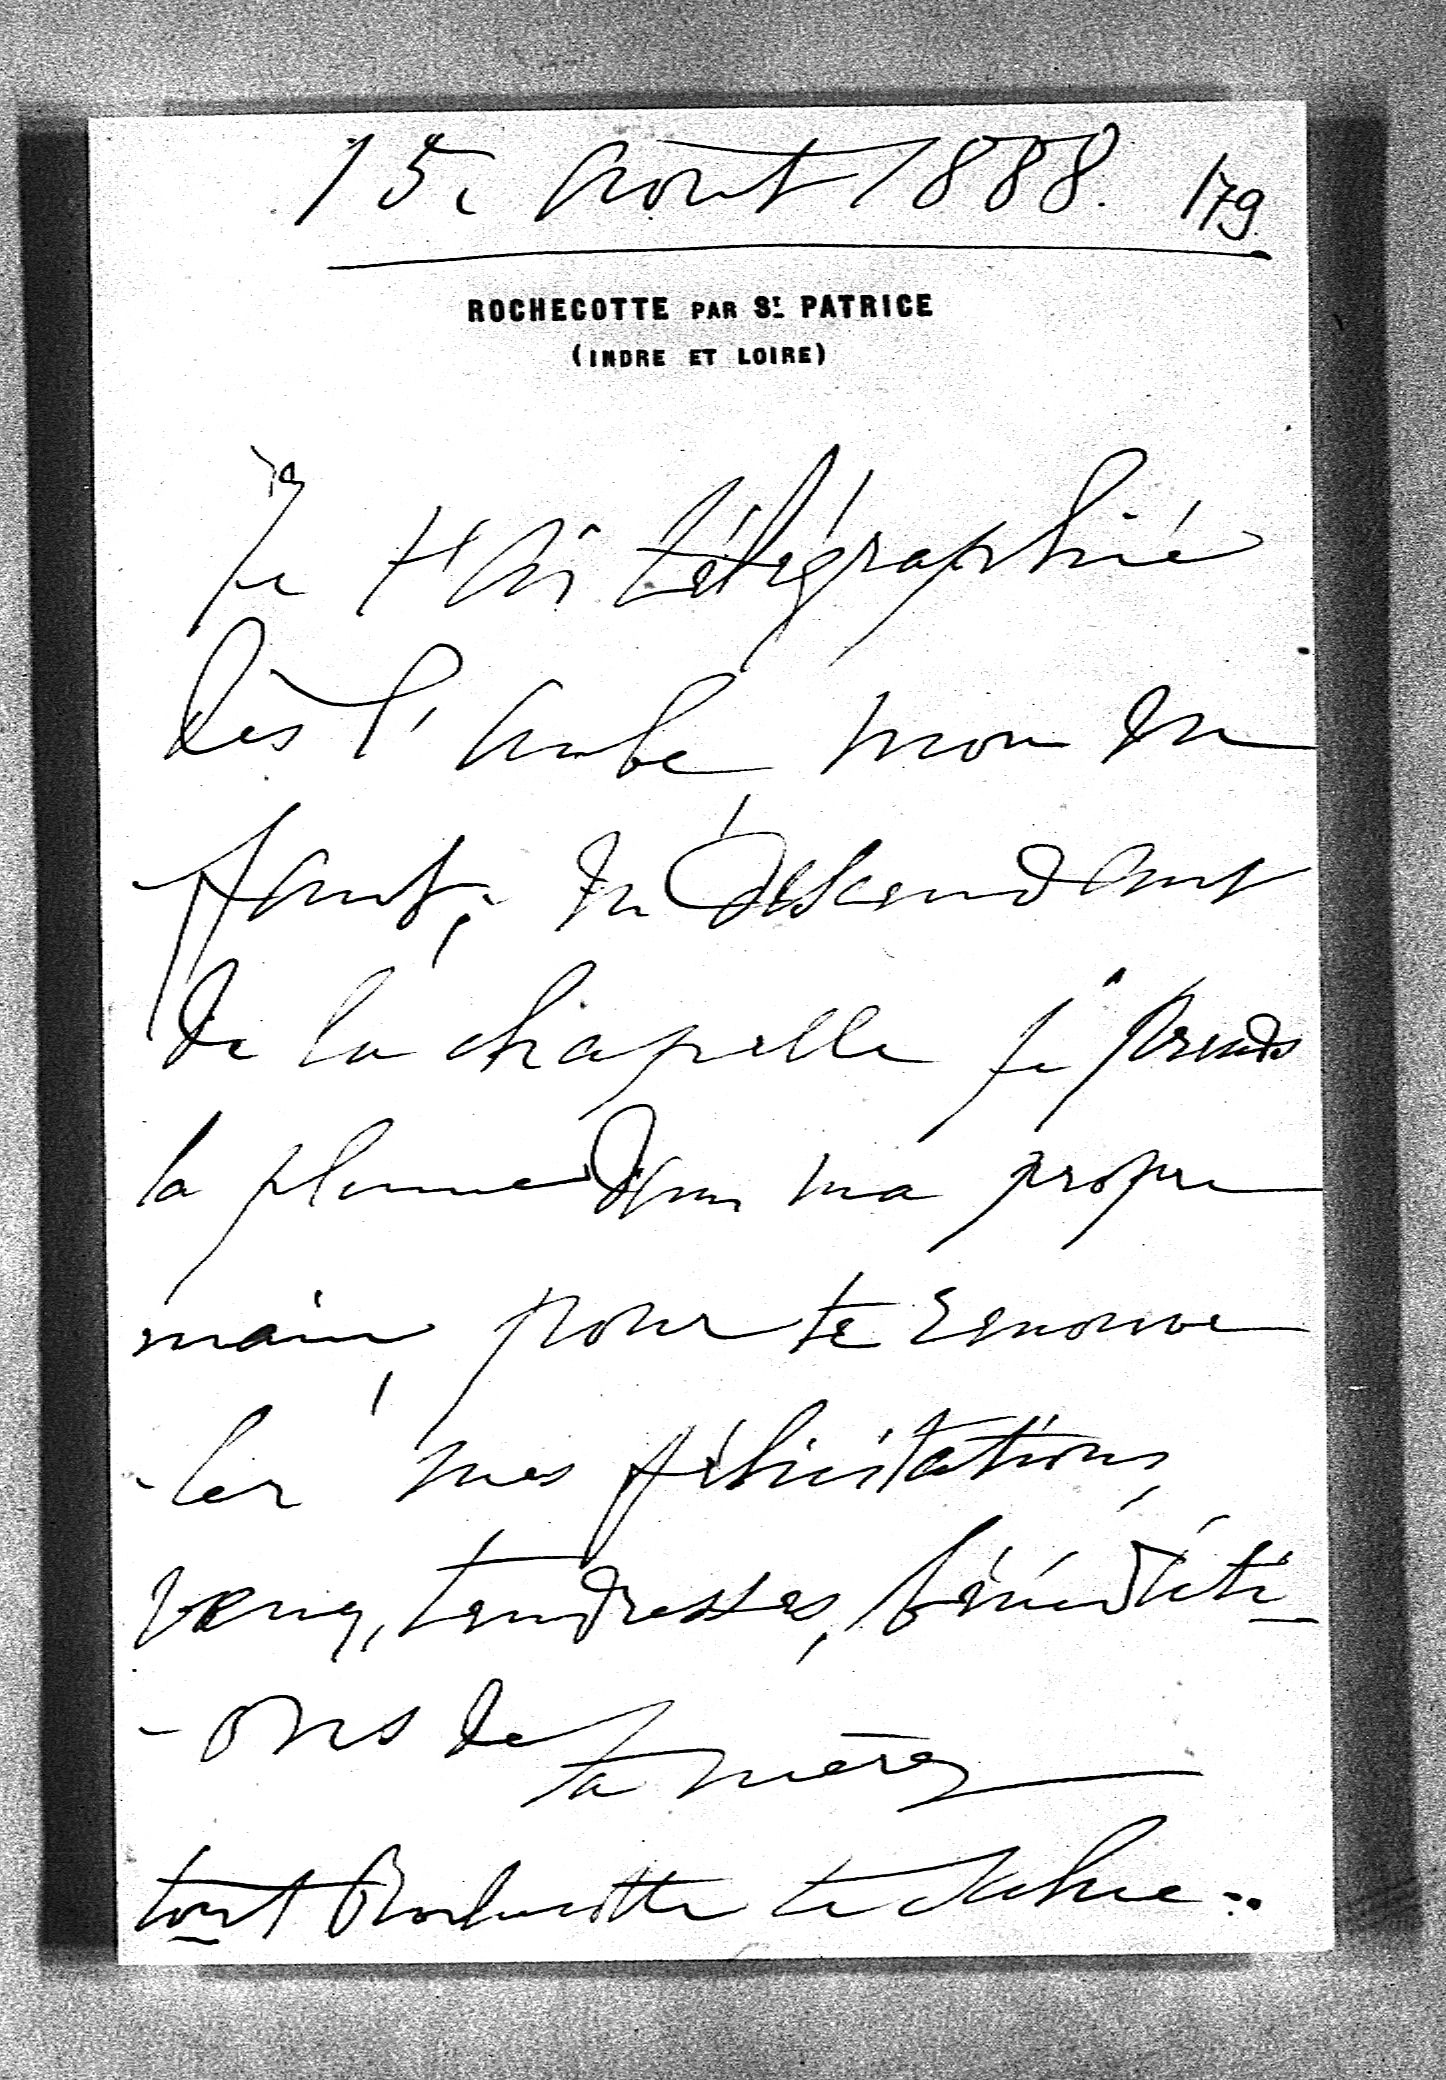 15. Août 1888. 179
ROCHECOTTE PAR ST PATRICE
(INDRE ET LOIRE)
Je t'ai télégraphié
dès l'aube mon en
fant; en descendant
de la chapelle je prends
la plume dans ma propre
main, pour te renouve
-ler mes félicitations,
vœux, tendresses, bénédicti
-ons de
ta mère
tout Rochecotte te salue...